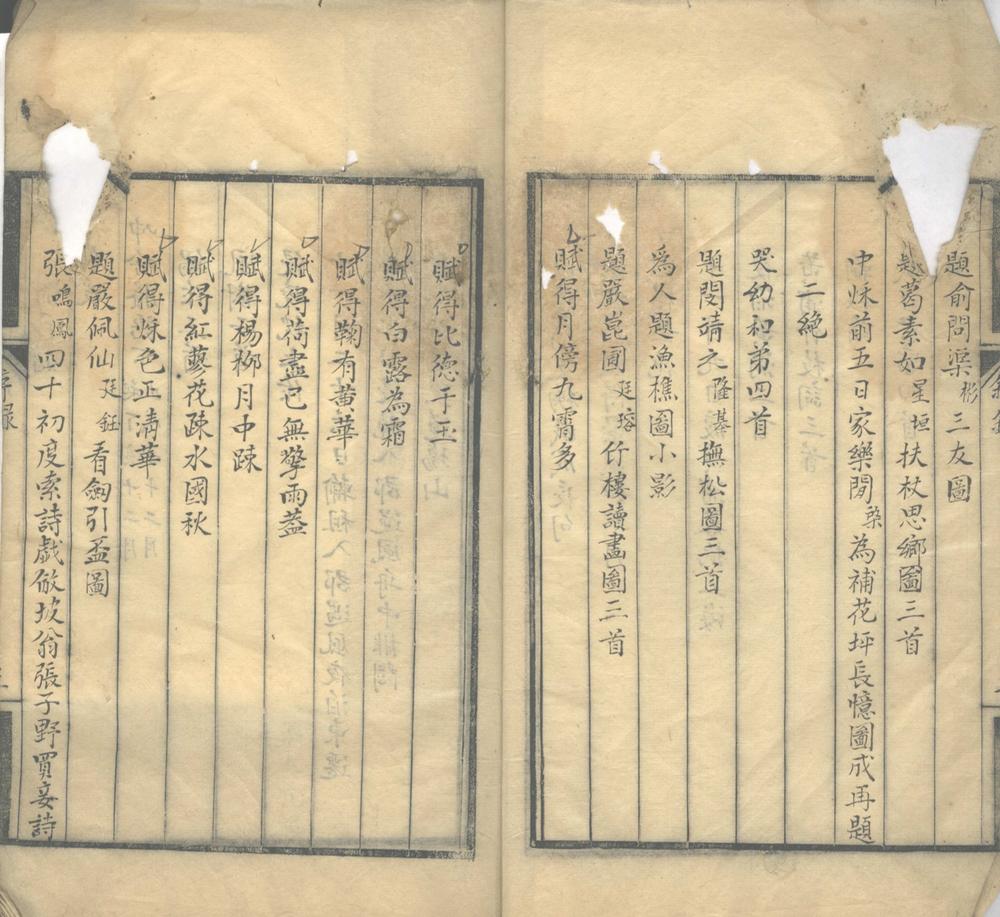 題俞問渠彬三友圖
題葛素如星垣扶杖思鄉圖三首
中秌前五日家樂閒棨為補花坪長憶圖成再題
二絶
哭幼和弟四首
題閔靖之隆基撫松圖三首
為人題漁樵圖小影
題嚴崑圃廷瑢竹樓讀畫圖三首
賦得月傍九霄多
賦得比德于玉
賦得白露為霜
賦得鞠有黃華
賦得荷盡已無擎雨葢
賦得楊柳月中踈
賦得紅蓼花疎水國秋
賦得秌色正清華
題嚴佩仙廷鈺看劒引盃圖
張鳴鳳四十初度索詩戲倣坡翁張子野買妾詩